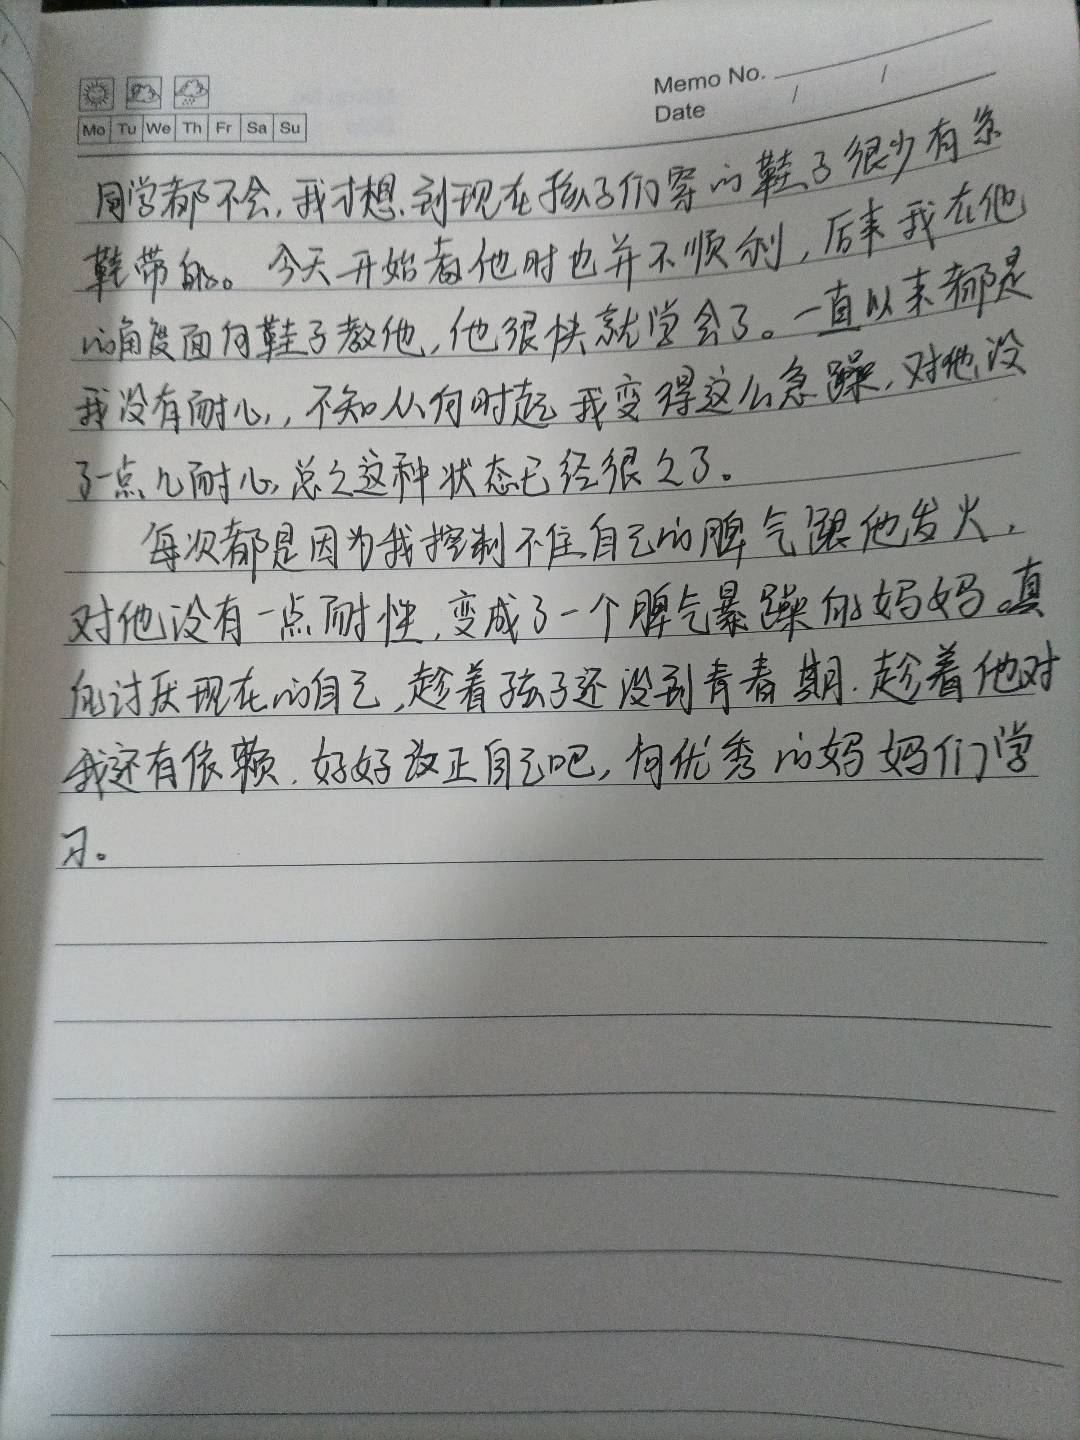 Memo No.
Date / /
Mo Tu We Th Fr Sa Su
同学都不会,我才想到现在孩子们穿的鞋子很少有系
鞋带的。今天开始教他时也并不顺利,后来我在他
的角度面向鞋子教他,他很快就学会了。一直以来都是
我没有耐心,,不知从何时起我变得这么急躁,对他没
了一点儿耐心,总之这种状态已经很久了。
每次都是因为我控制不住自己的脾气跟他发火,
对他没有一点耐性,变成了一个脾气暴躁的妈妈。真
的讨厌现在的自己,趁着孩子还没到青春期.趁着他对
我还有依赖.好好改正自己吧,向优秀的妈妈们学
习。